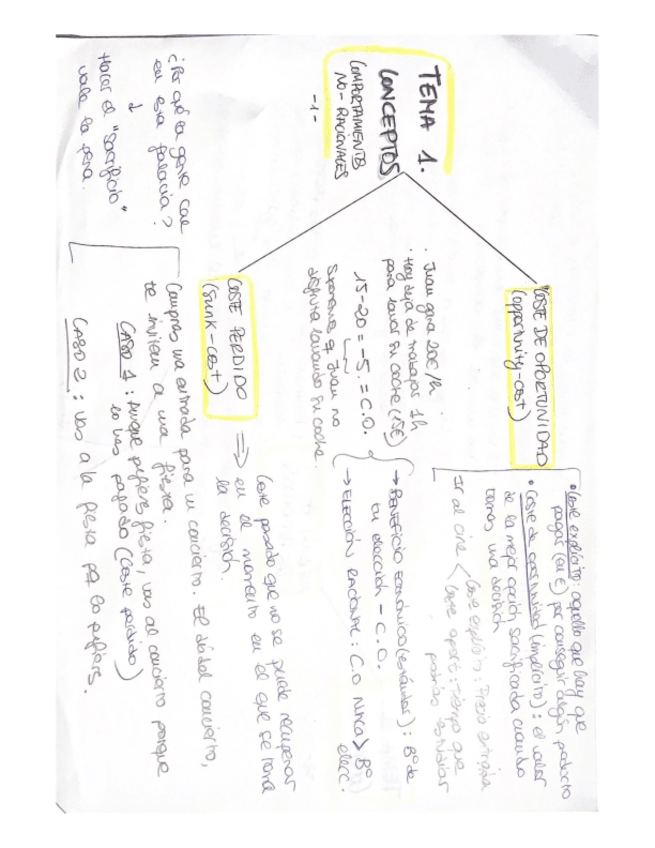 TEMA 1.
CONCEPTOS
COMPORTAMIENTOS
NO-RACIONALES
-1-
COSTE DE OPORTUNIDAD
(opportunity-cost)
• Coste explícito: aquello que hay que
pagar (en €) por conseguir algún producto
• Coste de oportunidad (implícito): el valor
de la mejor opción sacrificada cuando
tomas una decisión
Ir al cine < Coste explícito: Precio entrada
Coste oport.: tiempo que
podrías estudiar
· Juan gana 20€/h
· Hoy deja de trabajar 1h
para lavar su coche (15€)
15-20 = -5. = C.O.
Suponemos q Juan no
disfruta lavando su coche.
→ BENEFICIO ECONÓMICO (): Bº de
tu elección - C.O.
→ ELECCIÓN RACIONAL: C.O NUNCA > Bº
elecc.
COSTE PERDIDO
(sunk-cost)
⇒ Coste pasado que no se puede recuperar
en el momento en el que se toma
la decisión.
Compras una entrada para un concierto. El día del concierto,
te invitan a una fiesta.
CASO 1: Aunque prefieres fiesta, vas al concierto porque
lo has pagado (Coste perdido)
CASO 2: Vas a la fiesta pq lo prefieres.
¿Por qué la gente cae
en esta falacia?
↓
Hacer el "sacrificio"
vale la pena.